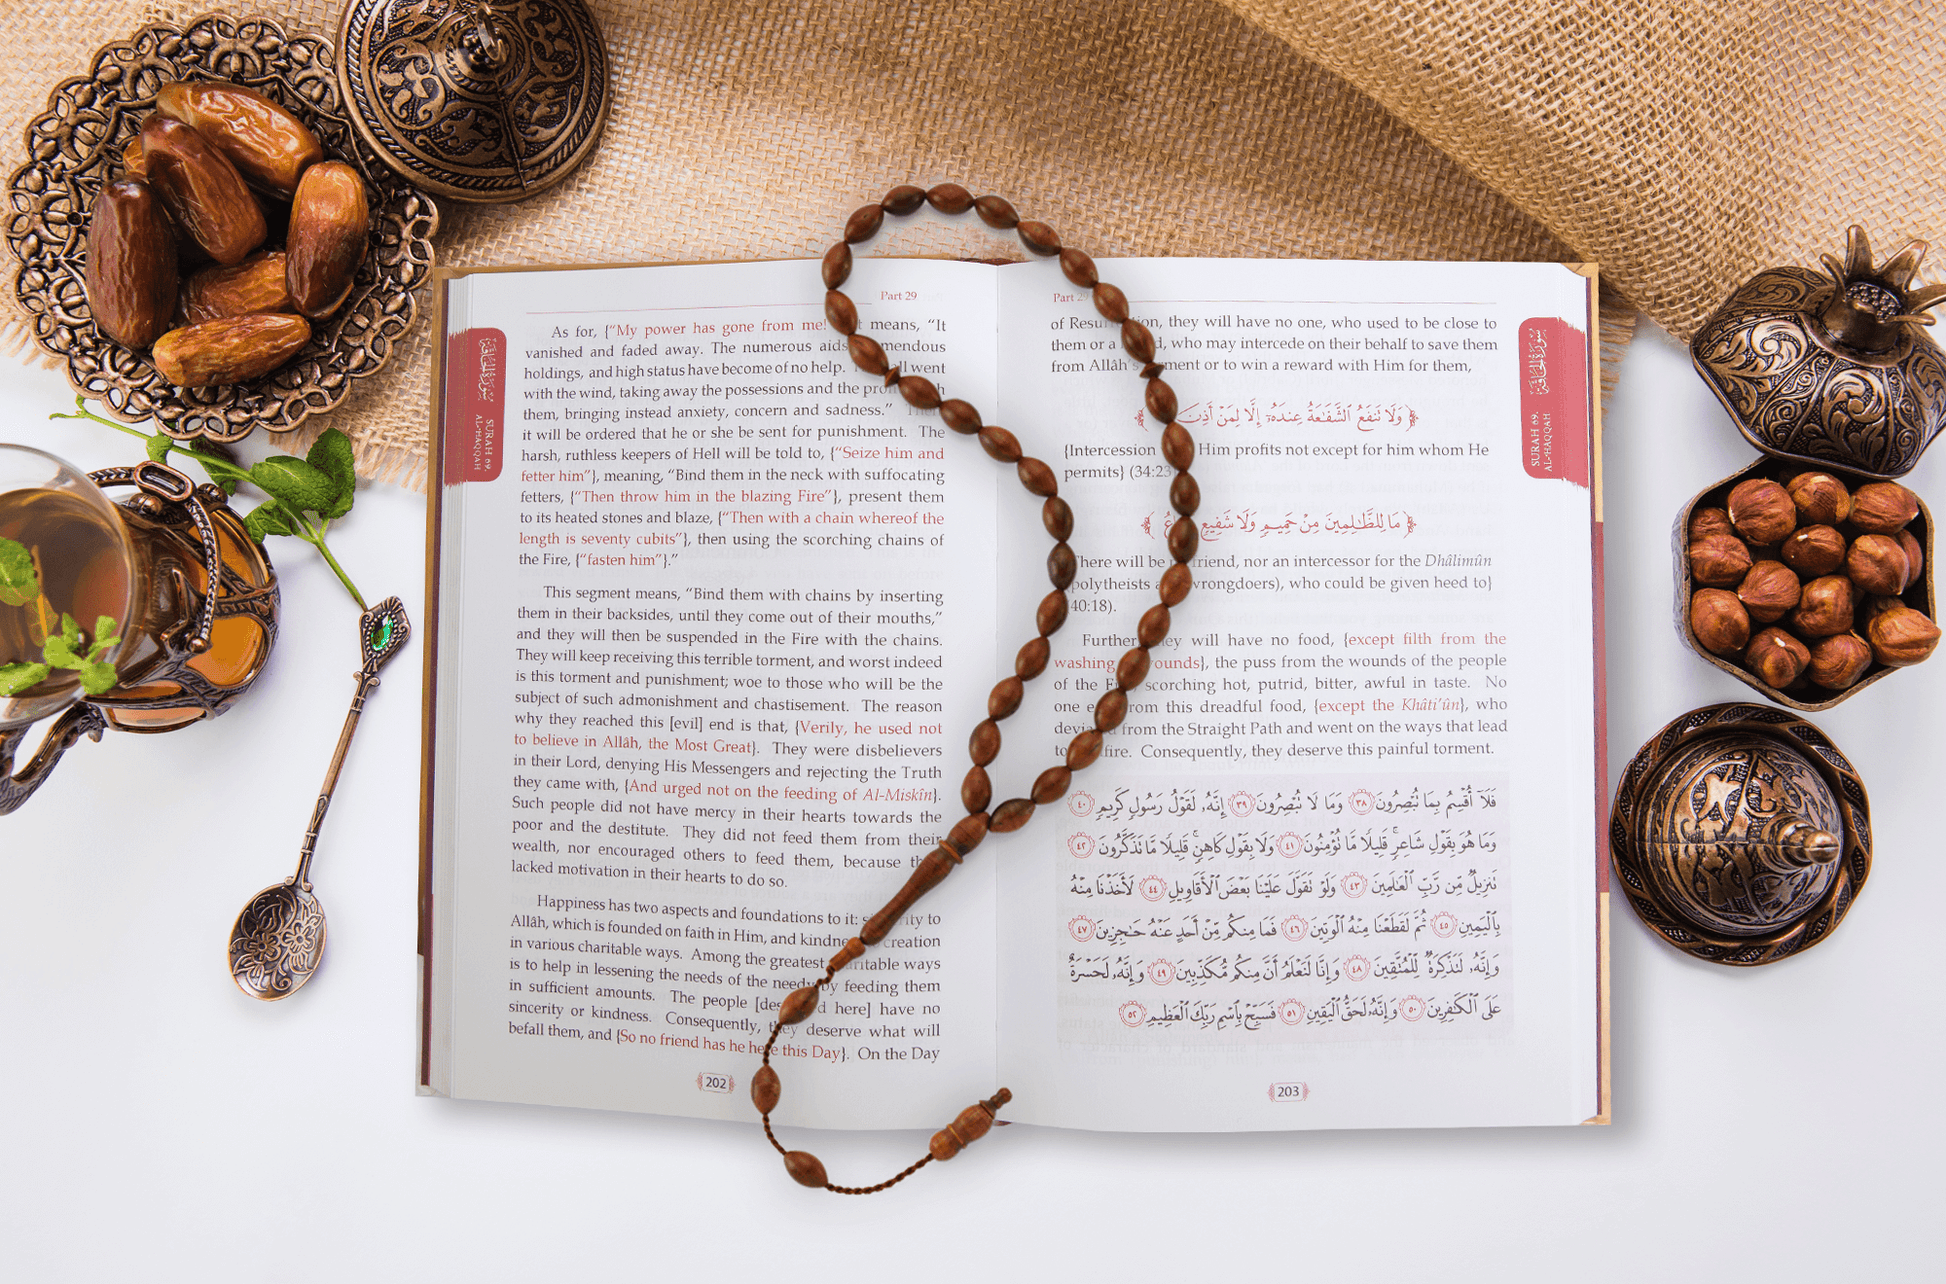 Part 29
سورة الحاقة
SURAH 69.
AL-HAQQAH
As for, {“My power has gone from me! means, “It
vanished and faded away. The numerous aids
holdings, and high status have become of no help. went
with the wind, taking away the possessions and the
them, bringing instead anxiety, concern and sadness.”
it will be ordered that he or she be sent for punishment. The
harsh, ruthless keepers of Hell will be told to, {“Seize him and
fetter him”}, meaning, “Bind them in the neck with suffocating
fetters, {“Then throw him in the blazing Fire”}, present them
to its heated stones and blaze, {“Then with a chain whereof the
length is seventy cubits”}, then using the scorching chains of
the Fire, {“fasten him”}.”
This segment means, “Bind them with chains by inserting
them in their backsides, until they come out of their mouths,”
and they will then be suspended in the Fire with the chains.
They will keep receiving this terrible torment, and worst indeed
is this torment and punishment; woe to those who will be the
subject of such admonishment and chastisement. The reason
why they reached this [evil] end is that, {Verily, he used not
to believe in Allâh, the Most Great}. They were disbelievers
in their Lord, denying His Messengers and rejecting the Truth
they came with, {And urged not on the feeding of Al-Miskîn}.
Such people did not have mercy in their hearts towards the
poor and the destitute. They did not feed them from their
wealth, nor encouraged others to feed them, because
lacked motivation in their hearts to do so.
Happiness has two aspects and foundations to it: to
Allâh, which is founded on faith in Him, and kindness creation
in various charitable ways. Among the greatest charitable ways
is to help in lessening the needs of the needy by feeding them
in sufficient amounts. The people here] have no
sincerity or kindness. Consequently, they deserve what will
befall them, and {So no friend has he here this Day}. On the Day
202
Part 29
سورة الحاقة
SURAH 69.
AL-HAQQAH
of Resurrection, they will have no one, who used to be close to
them or a who may intercede on their behalf to save them
from Allâh’s or to win a reward with Him for them,
﴿وَلَا تَنفَعُ الشَّفَاعَةُ عِندَهُ إِلَّا لِمَنْ أَذِنَ
{Intercession Him profits not except for him whom He
permits} (34:23
﴿مَا لِلظَّالِمِينَ مِنْ حَمِيمٍ وَلَا شَفِيعٍ ﴾
There will be friend, nor an intercessor for the Dhâlimûn
(polytheists wrongdoers), who could be given heed to}
40:18).
Further they will have no food, {except filth from the
washing wounds}, the puss from the wounds of the people
of the scorching hot, putrid, bitter, awful in taste. No
one from this dreadful food, {except the Khâti’ûn}, who
deviated from the Straight Path and went on the ways that lead
to fire. Consequently, they deserve this painful torment.
فَلَا أُقْسِمُ بِمَا تُبْصِرُونَ ٣٨ وَمَا لَا تُبْصِرُونَ ٣٩ إِنَّهُ لَقَوْلُ رَسُولٍ كَرِيمٍ ٤٠
وَمَا هُوَ بِقَوْلِ شَاعِرٍ قَلِيلًا مَّا تُؤْمِنُونَ ٤١ وَلَا بِقَوْلِ كَاهِنٍ قَلِيلًا مَّا تَذَكَّرُونَ ٤٢
تَنزِيلٌ مِّن رَّبِّ الْعَالَمِينَ ٤٣ وَلَوْ تَقَوَّلَ عَلَيْنَا بَعْضَ الْأَقَاوِيلِ ٤٤ لَأَخَذْنَا مِنْهُ
بِالْيَمِينِ ٤٥ ثُمَّ لَقَطَعْنَا مِنْهُ الْوَتِينَ ٤٦ فَمَا مِنكُم مِّنْ أَحَدٍ عَنْهُ حَاجِزِينَ ٤٧
وَإِنَّهُ لَتَذْكِرَةٌ لِّلْمُتَّقِينَ ٤٨ وَإِنَّا لَنَعْلَمُ أَنَّ مِنكُم مُّكَذِّبِينَ ٤٩ وَإِنَّهُ لَحَسْرَةٌ
عَلَى الْكَافِرِينَ ٥٠ وَإِنَّهُ لَحَقُّ الْيَقِينِ ٥١ فَسَبِّحْ بِاسْمِ رَبِّكَ الْعَظِيمِ ٥٢
203